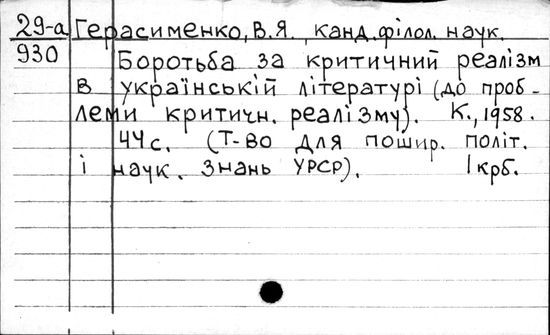 29-а Герасименко, В.Я., канд. філол. наук.
930 Боротьба за критичний реалізм
в українській літературі (до проб-
леми критичн. реалізму). К., 1958.
44с. (Т-во для пошир. політ.
і наук. знань УРСР). 1 крб.